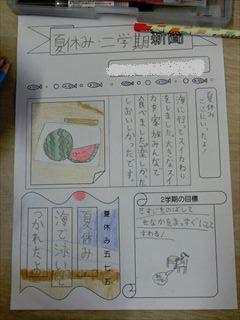 夏休み・二学期 新聞
夏休み
ここにいったよ!
海に行ってスイカわり
をしました。大きなスイ
カを家族みんなで
食べました。楽しかった
しおいしかったです。
夏休み五七五
夏休み
海で泳いで
つかれたよ
2学期の目標
せすじをのばして
せなかをまっすぐにして
すわる!